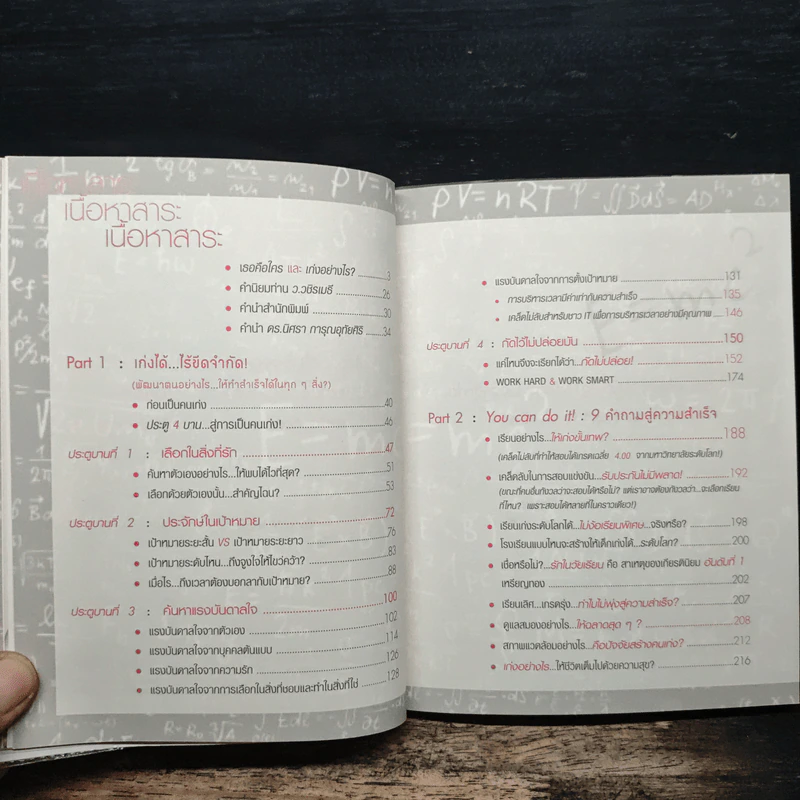 เนื้อหาสาระ
เนื้อหาสาระ
• เธอคือใคร และ เก่งอย่างไร? ........3
• คำนิยมท่าน ว.วชิรเมธี ........26
• คำนำสำนักพิมพ์ ........30
• คำนำ ดร.นิศรา การุณอุทัยศิริ ........34
Part 1 : เก่งได้...ไร้ขีดจำกัด!
(พัฒนาตนอย่างไร...ให้ทำสำเร็จได้ในทุก ๆ สิ่ง?)
• ก่อนเป็นคนเก่ง ........40
• ประตู 4 บาน...สู่การเป็นคนเก่ง! ........46
ประตูบานที่ 1 : เลือกในสิ่งที่รัก ........47
• ค้นหาตัวเองอย่างไร...ให้พบได้ไวที่สุด? ........51
• เลือกด้วยตัวเองนั้น...สำคัญไฉน? ........53
ประตูบานที่ 2 : ประจักษ์ในเป้าหมาย ........72
• เป้าหมายระยะสั้น VS เป้าหมายระยะยาว ........76
• เป้าหมายระดับไหน...ถึงจูงใจให้ไขว่คว้า? ........83
• เมื่อไร...ถึงเวลาต้องบอกลากับเป้าหมาย? ........88
ประตูบานที่ 3 : ค้นหาแรงบันดาลใจ ........100
• แรงบันดาลใจจากตัวเอง ........102
• แรงบันดาลใจจากบุคคลต้นแบบ ........114
• แรงบันดาลใจจากความรัก ........126
• แรงบันดาลใจจากการเลือกในสิ่งที่ชอบและทำในสิ่งที่ใช่ ........128
PV = nRT
• แรงบันดาลใจจากการตั้งเป้าหมาย ........131
• การบริหารเวลามีค่าเท่ากับความสำเร็จ ........135
• เคล็ดไม่ลับสำหรับชาว IT เพื่อการบริหารเวลาอย่างมีคุณภาพ ........146
ประตูบานที่ 4 : กัดไว้ไม่ปล่อยมัน ........150
• แค่ไหนจึงจะเรียกได้ว่า...กัดไม่ปล่อย! ........152
• WORK HARD & WORK SMART ........174
Part 2 : You can do it! : 9 คำถามสู่ความสำเร็จ
• เรียนอย่างไร...ให้เก่งขั้นเทพ? ........188
(เคล็ดไม่ลับที่ทำให้สอบได้เกรดเฉลี่ย 4.00 จากมหาวิทยาลัยระดับโลก!)
• เคล็ดลับในการสอบแข่งขัน...รับประกันไม่มีพลาด! ........192
(ขณะที่คนอื่นกังวลว่าจะสอบได้หรือไม่? แต่เราอาจต้องกังวลว่า...จะเลือกเรียน
ที่ไหน? เพราะสอบได้หลายที่ในคราวเดียว!)
• เรียนเก่งระดับโลกได้...ไม่ง้อเรียนพิเศษ...จริงหรือ? ........198
• โรงเรียนแบบไหนจะสร้างให้เด็กเก่งได้...ระดับโลก? ........200
• เชื่อหรือไม่?...รักในวัยเรียน คือ สาเหตุของเกียรตินิยม อันดับที่ 1
เหรียญทอง ........202
• เรียนเลิศ...เกรดรุ่ง...ทำไมไม่พุ่งสู่ความสำเร็จ? ........207
• ดูแลสมองอย่างไร...ให้ฉลาดสุด ๆ ? ........208
• สภาพแวดล้อมอย่างไร...คือปัจจัยสร้างคนเก่ง? ........212
• เก่งอย่างไร...ให้ชีวิตเต็มไปด้วยความสุข? ........216